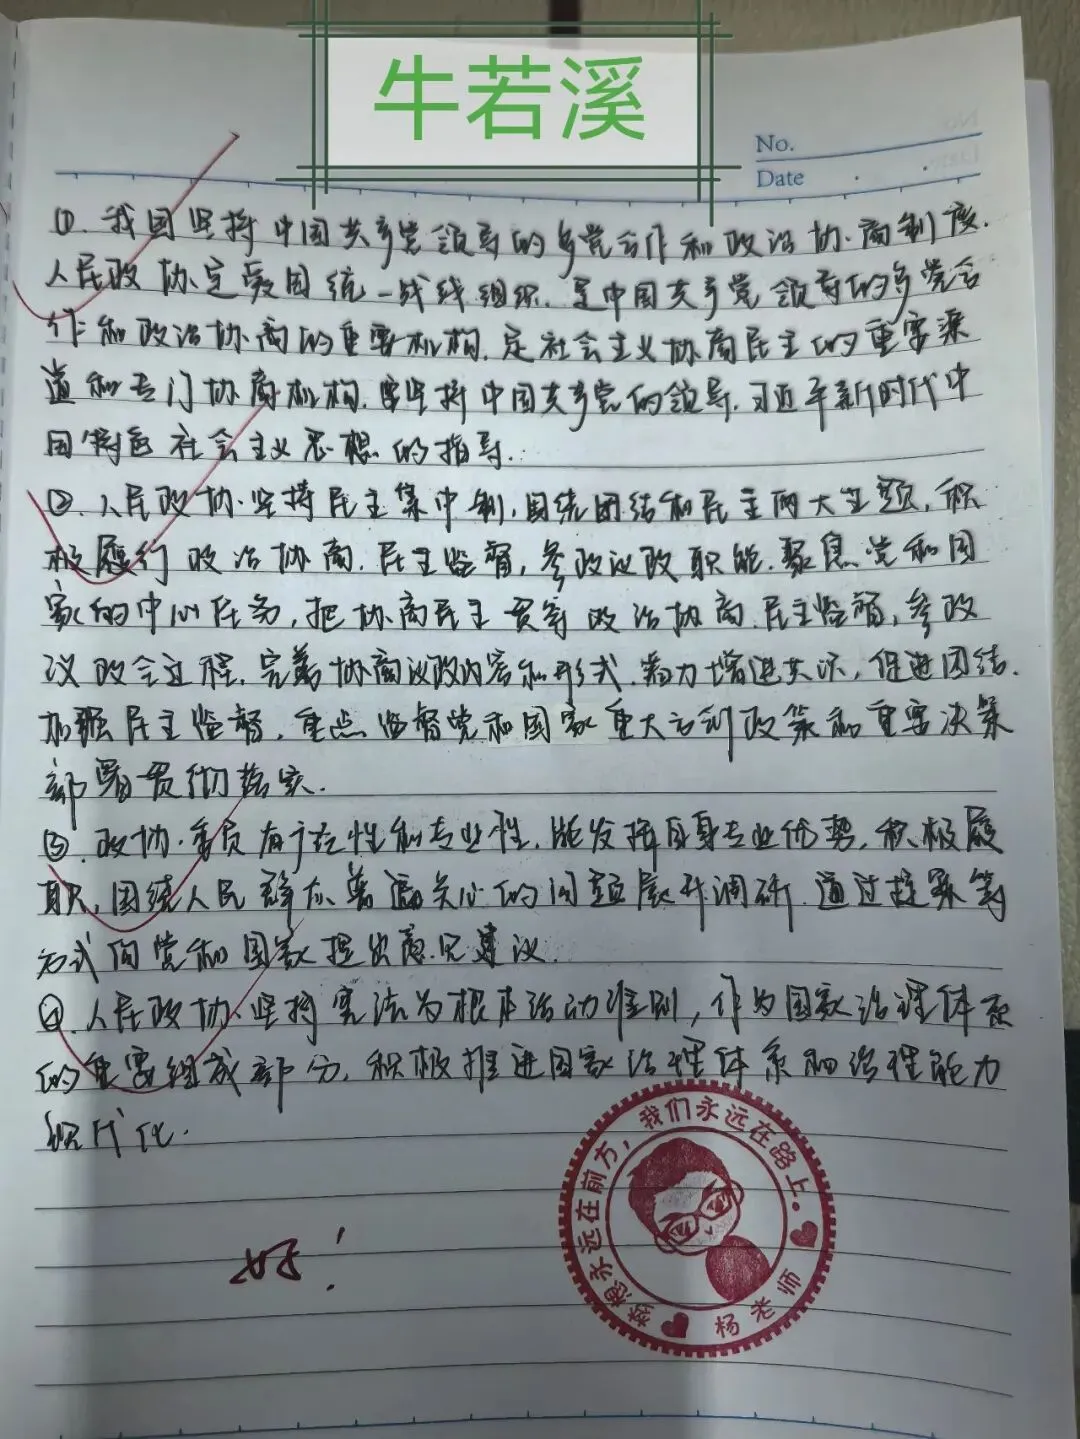 牛若溪
No.
Date
①. 我国坚持中国共产党领导的多党合作和政治协商制度.
人民政协是爱国统一战线组织. 是中国共产党领导的多党合
作和政治协商的重要机构, 是社会主义协商民主的重要渠
道和专门协商机构. 要坚持中国共产党的领导. 习近平新时代中
国特色社会主义思想的指导.
②. 人民政协坚持民主集中制, 围绕团结和民主两大主题, 积
极履行政治协商. 民主监督, 参政议政职能. 聚焦党和国
家的中心任务, 把协商民主贯穿政治协商. 民主监督, 参政
议政全过程. 完善协商议政内容和形式. 着力增进共识, 促进团结.
加强民主监督, 重点监督党和国家重大方针政策和重要决策
部署贯彻落实.
③. 政协委员有广泛性和专业性, 能发挥自身专业优势, 积极履
职, 围绕人民群众普遍关心的问题展开调研. 通过提案等
方式向党和国家提出意见建议.
④. 人民政协坚持宪法为根本活动准则, 作为国家治理体系
的重要组成部分, 积极推进国家治理体系和治理能力
现代化.
好!
梦想永远在前方, 我们永远在路上.
杨老师